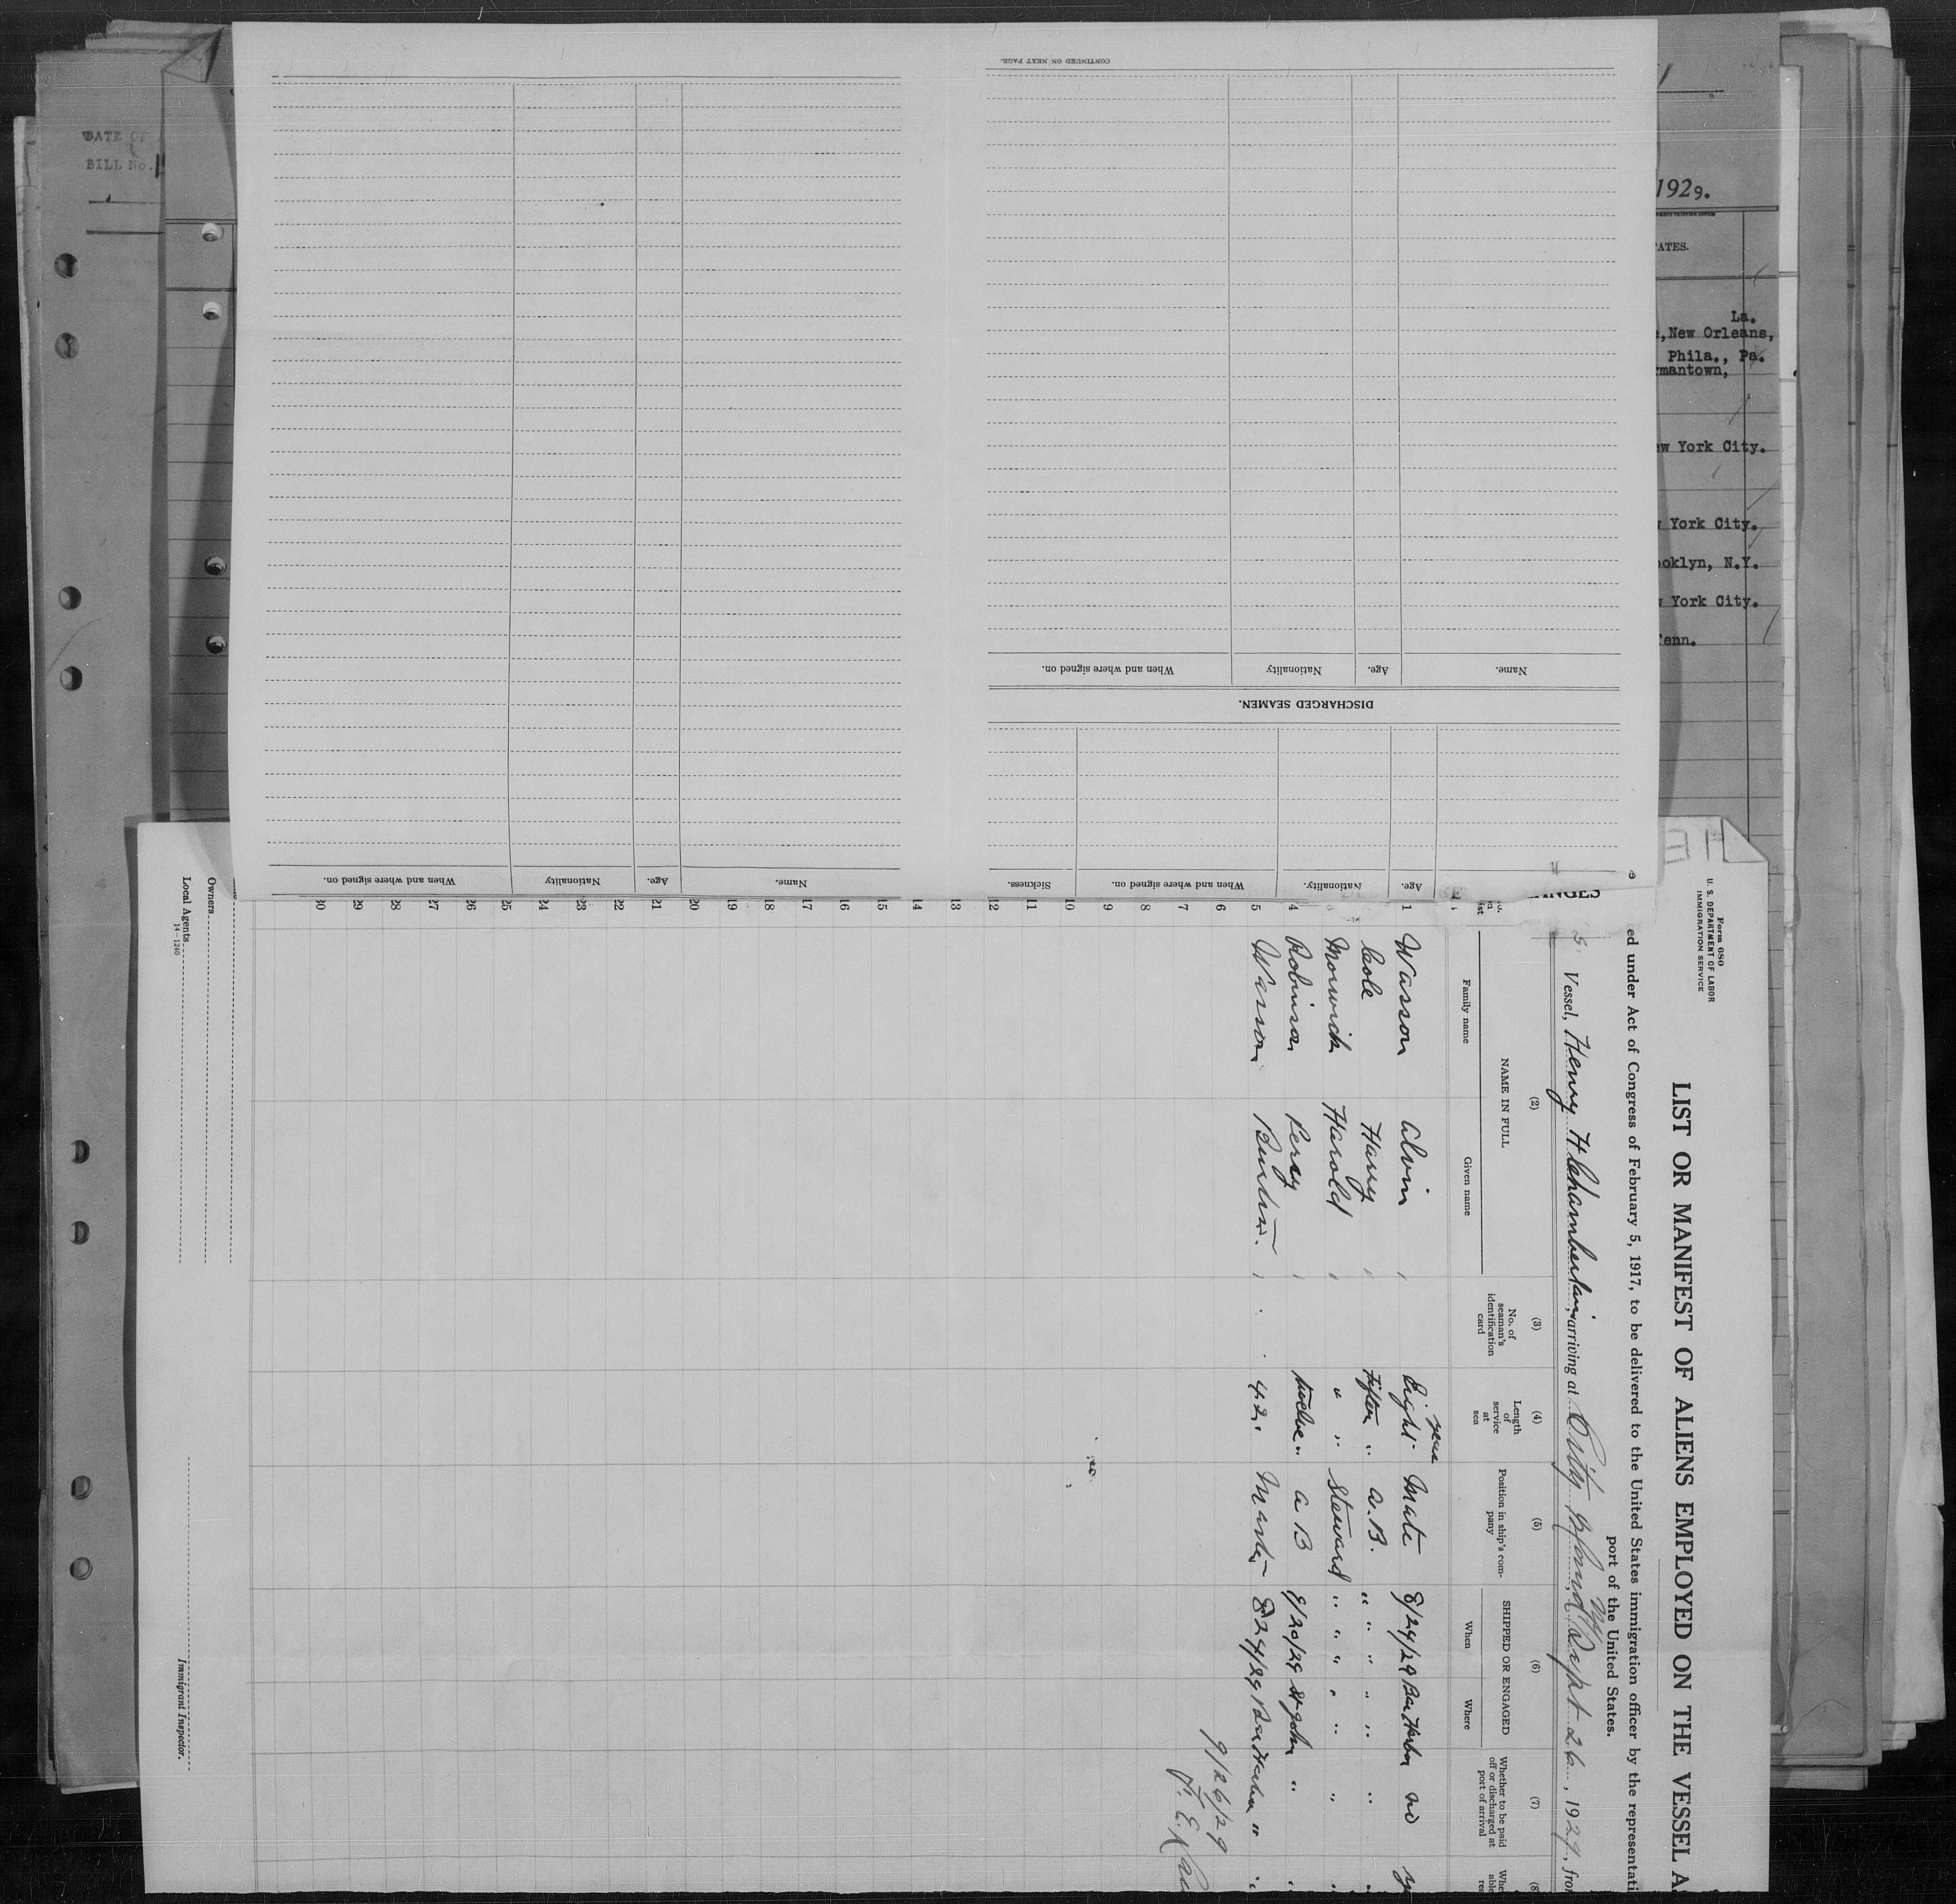 DATE OF
BILL No.
1929.
ATES.
La.
New Orleans,
Phila., Pa.
rmantown,
ew York City.
York City.
ooklyn, N.Y.
York City.
Tenn.
CONTINUED ON NEXT PAGE.
Name. Age. Nationality When and where signed on.
DISCHARGED SEAMEN.
Age. Nationality. When and where signed on. Sickness.
Name. Age. Nationality When and where signed on.
ANGES
Form 680
U. S. DEPARTMENT OF LABOR
IMMIGRATION SERVICE
LIST OR MANIFEST OF ALIENS EMPLOYED ON THE VESSEL A
ed under Act of Congress of February 5, 1917, to be delivered to the United States immigration officer by the representati
port of the United States.
Vessel, Henry H Chamberlain, arriving at Sept 26, 1929, fro
(2) (3) (4) (5) (6) (7) (8
NAME IN FULL
Family name Given name
No. of seaman's identification card
Length of service at sea
Position in ship's company
SHIPPED OR ENGAGED
When Where
Whether to be paid off or discharged at port of arrival
years
1 Wasson Alvin Eight Mate 8/24/29 Bar Harbor no
Cole Harry " a.B. " " " " " "
Norwich Harold " " Steward " " " " " "
4 Robinson Percy twelve " a B 9/20/29 St John "
5 Wasson 42 " Master 8 24/29 Bar Harbor " "
6
7
8
9
10
11
12
13
14
15
16
17
18
19
20
21
22
23
24
25
26
27
28
29
30
9/26/29
Owners
Local Agents
14—1240
Immigrant Inspector.